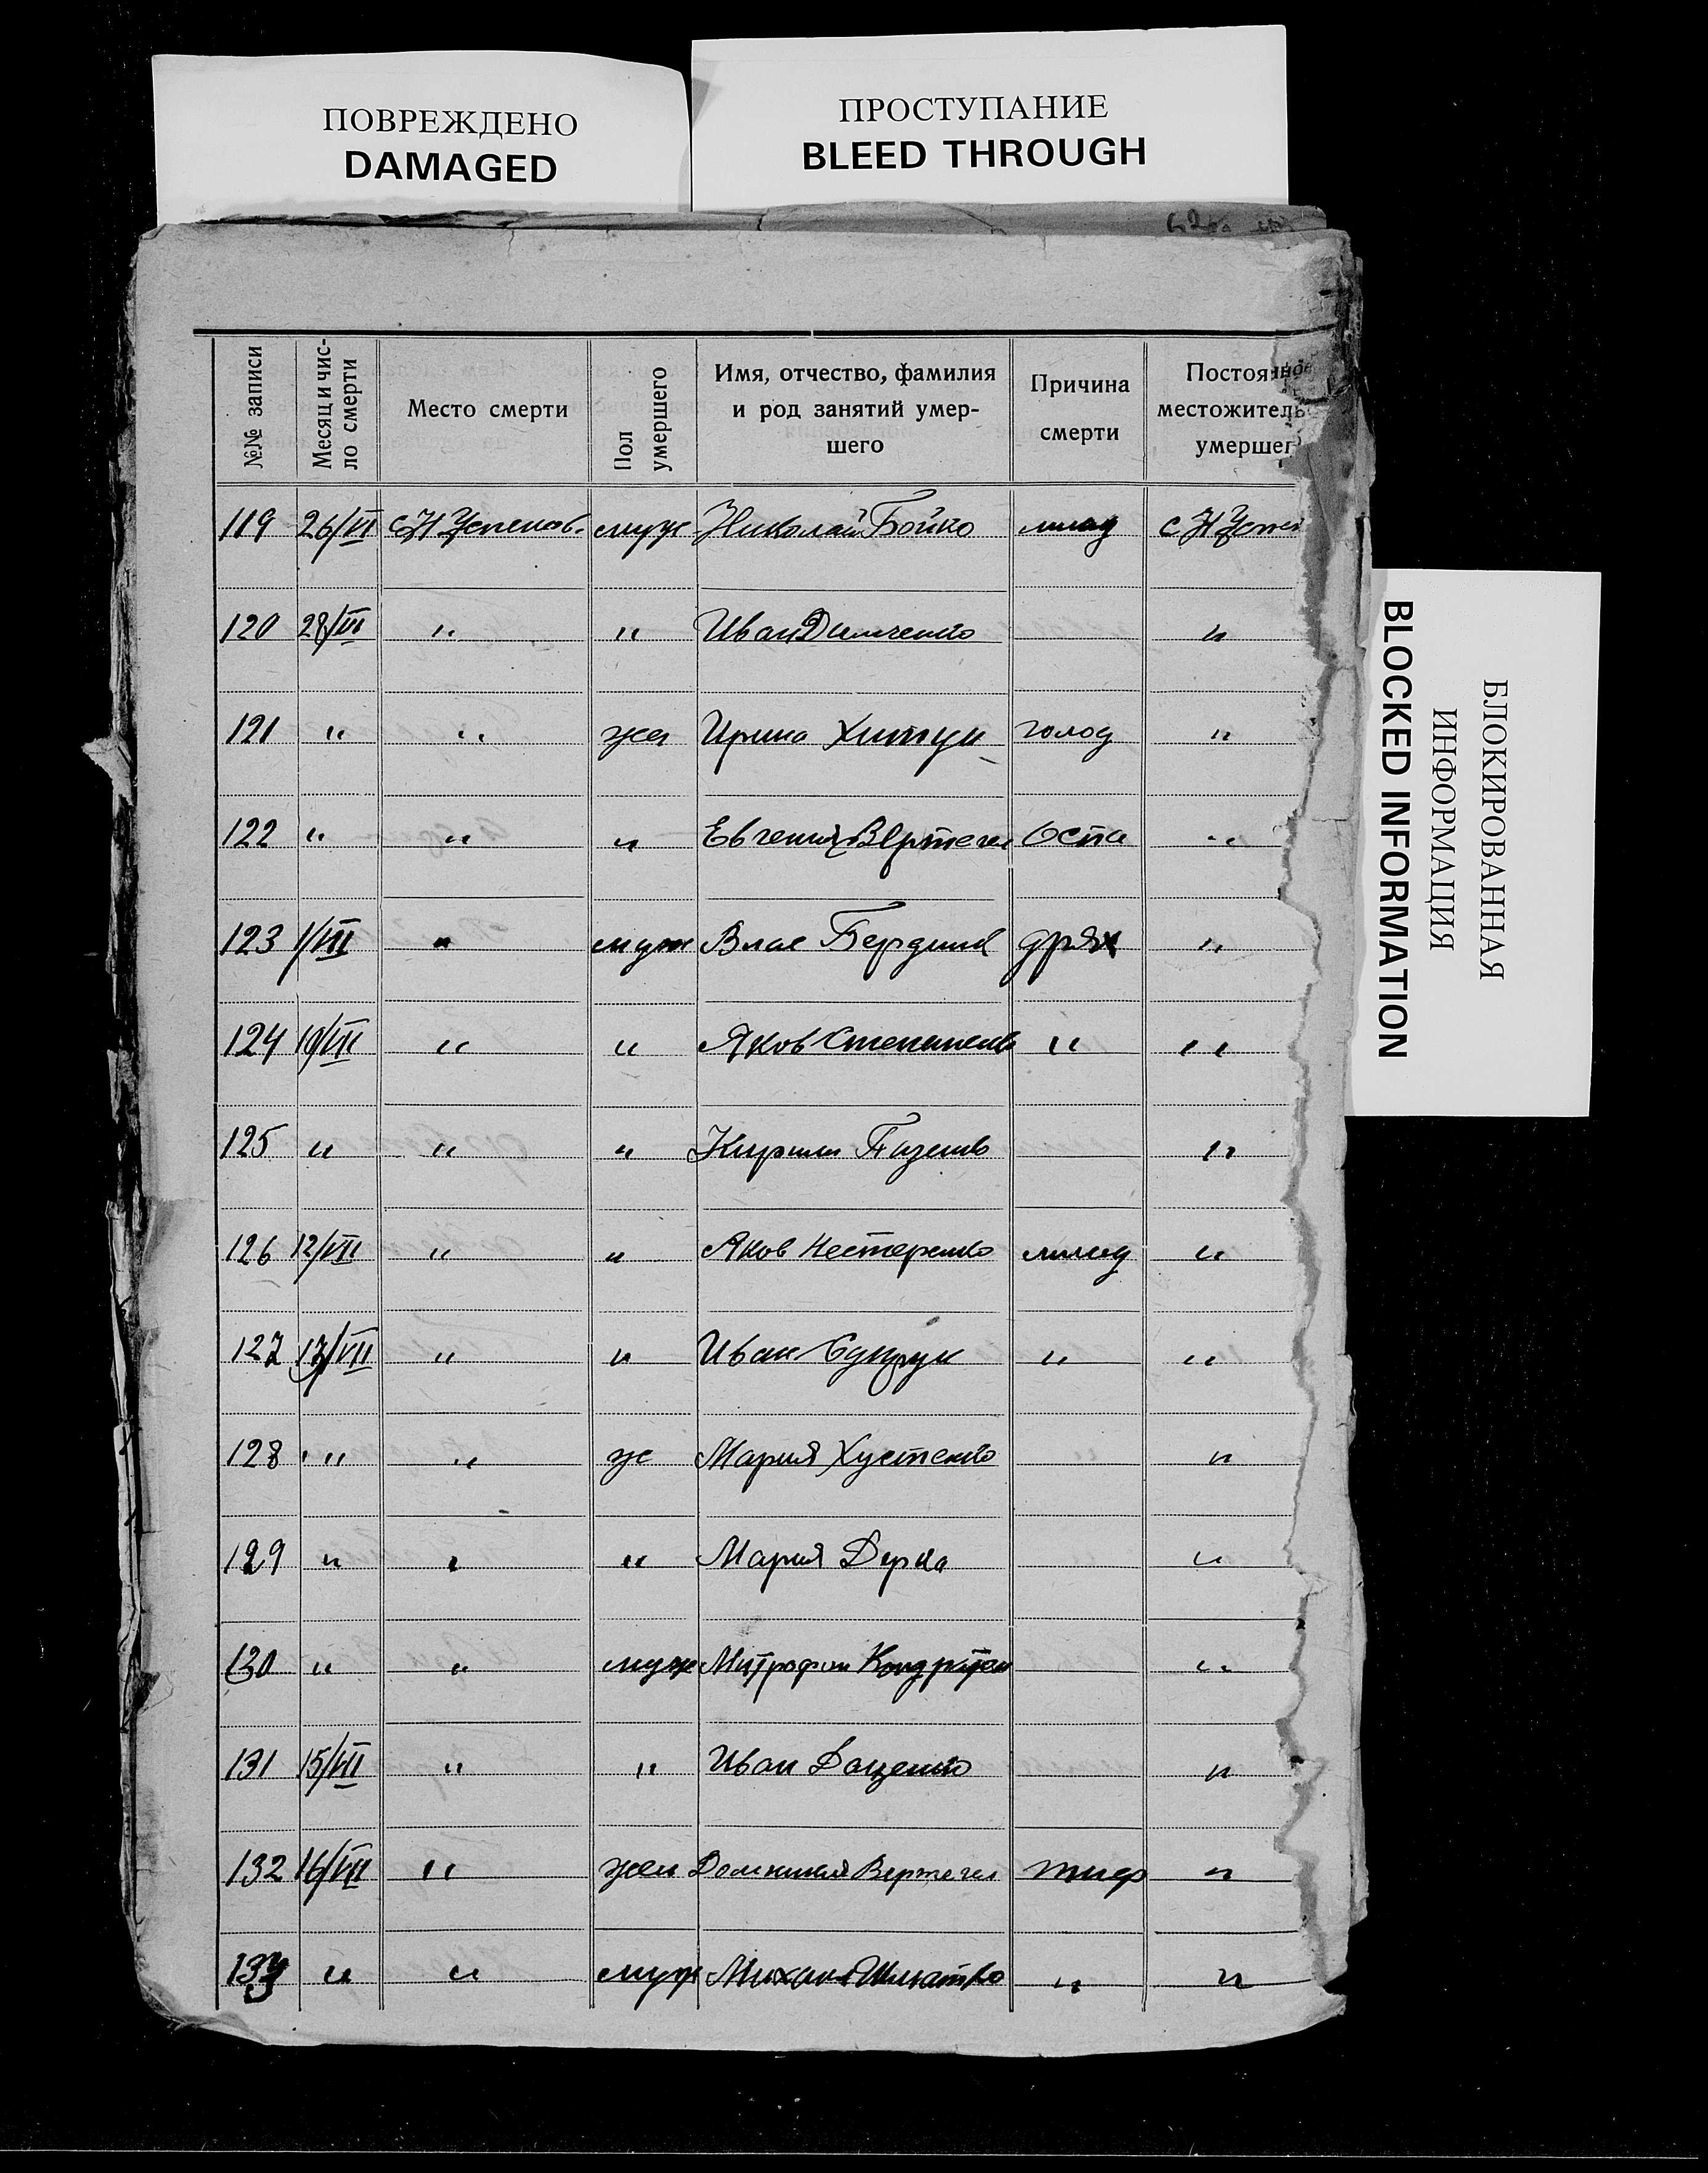 ПОВРЕЖДЕНО
DAMAGED
ПРОСТУПАНИЕ
BLEED THROUGH
№№ записи
Месяц и чис-
ло смерти
Место смерти
Пол
умершего
Имя, отчество, фамилия
и род занятий умер-
шего
Причина
смерти
Постоянное
местожитель
умершег
119 26/VI с Н Успенов. муж Николай Бойко млад с Н Успен
120 28/VI " " Иван Димченко "
121 " " жен Ирина голод "
122 " " " Евгения Вертегел Оспа "
123 1/VII " муж Влас дрях "
124 10/VII " " Яков " "
125 " " " Кирилл "
126 12/VII " " Яков Нестеренко млад "
127 13/VII " " Иван " "
128 " " ж Мария Хустенко "
129 " " " Мария "
130 " " муж Митрофан "
131 15/VII " " Иван Доценко "
132 16/VII " жен Домникия Вертегел тиф "
133 " " муж Михаил Шматко " "
БЛОКИРОВАННАЯ
ИНФОРМАЦИЯ
BLOCKED INFORMATION